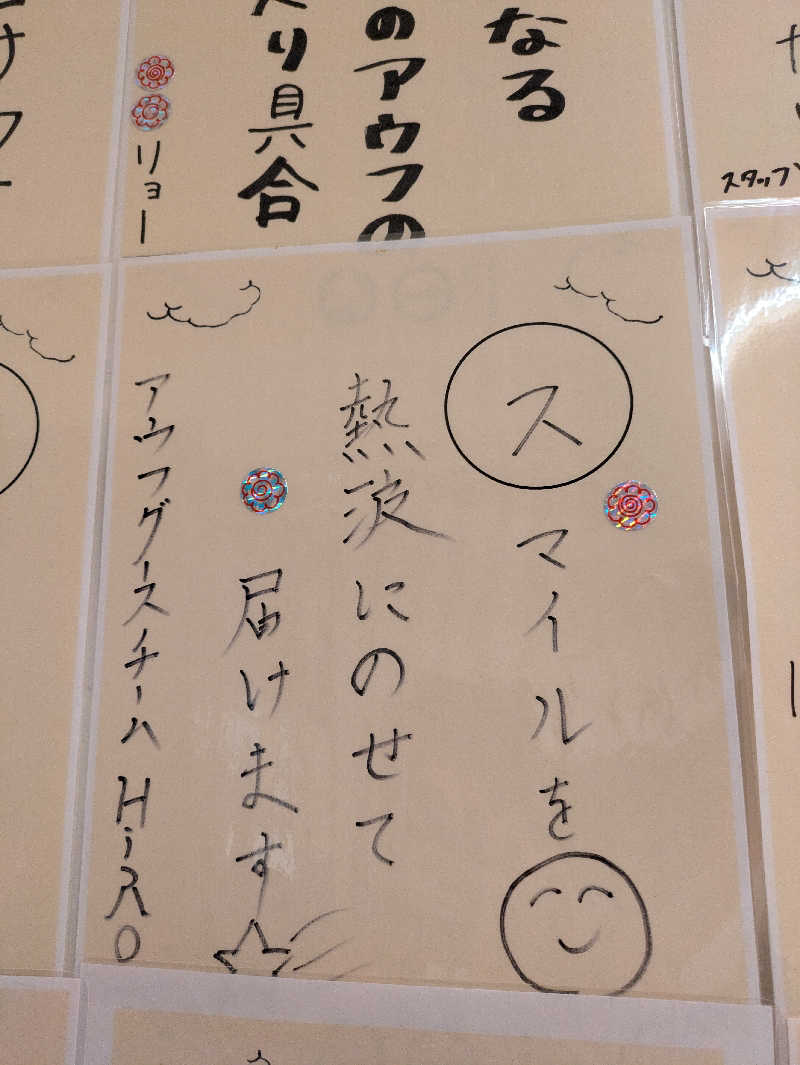 スタッフ
なる
のアウフの
り具合
リョー
スマイルを
熱波にのせて
届けます
アウフグースチーム HiRO